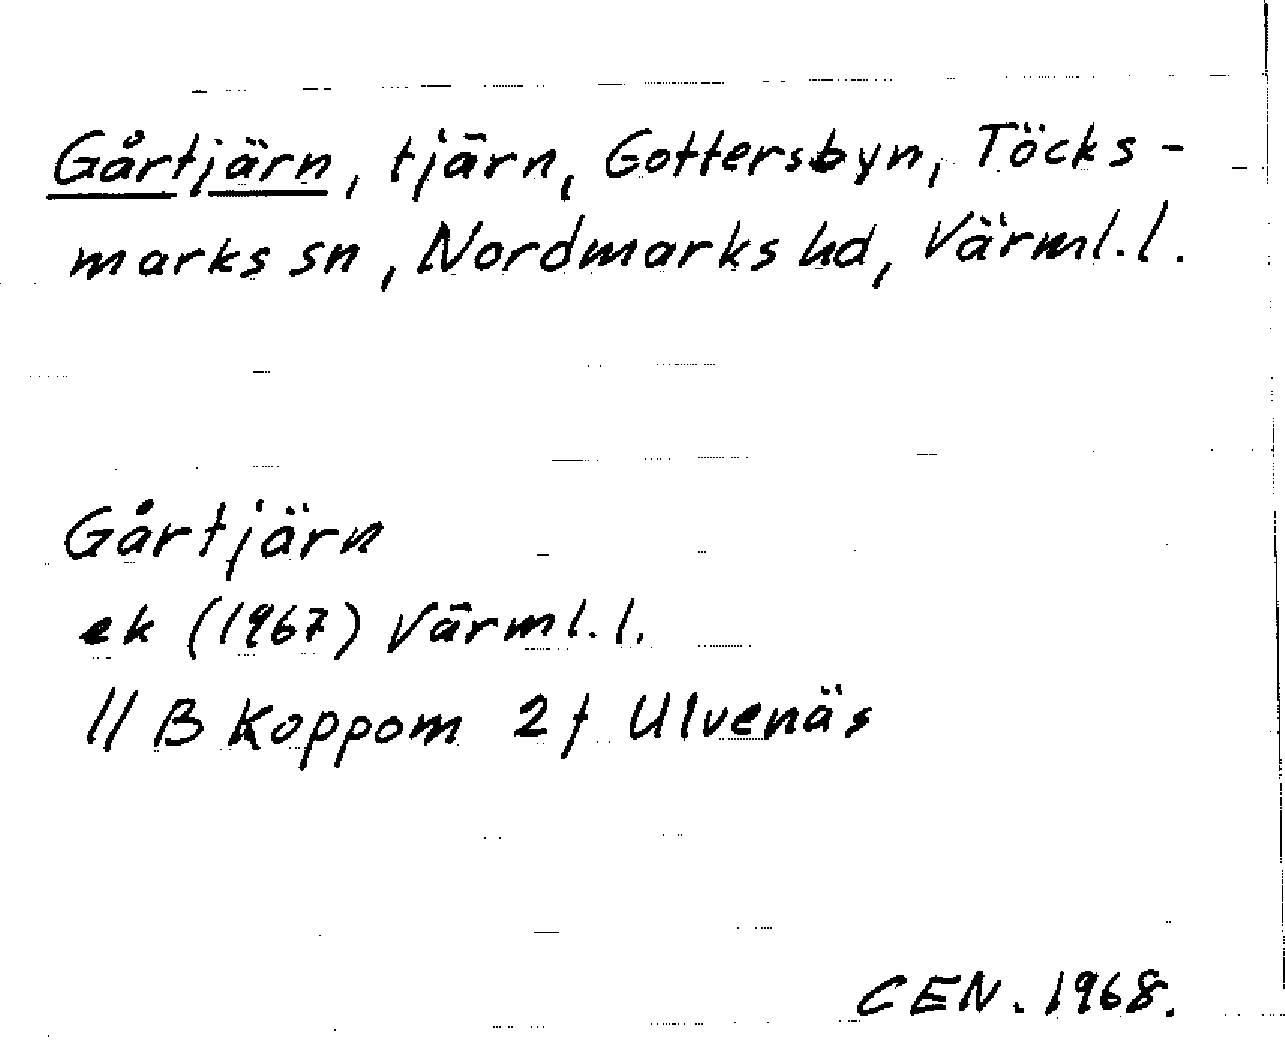 Gårtjärn, tjärn, Gottersbyn, Töcks-
marks sn, Nordmarks hd, Värml. l.
Gårtjärn
ek (1967) Värml. l.
11 B Koppom 2f Ulvenäs
CEN. 1968.